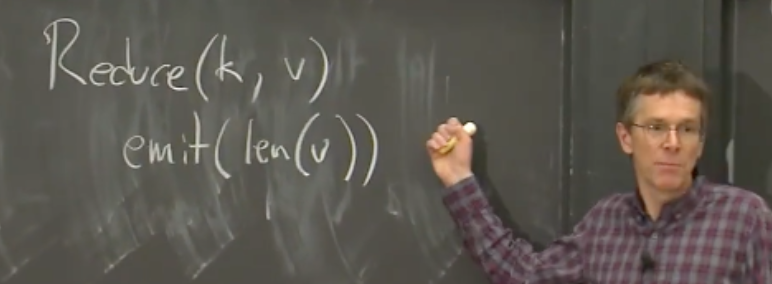 Reduce(k, v)
emit(len(v))